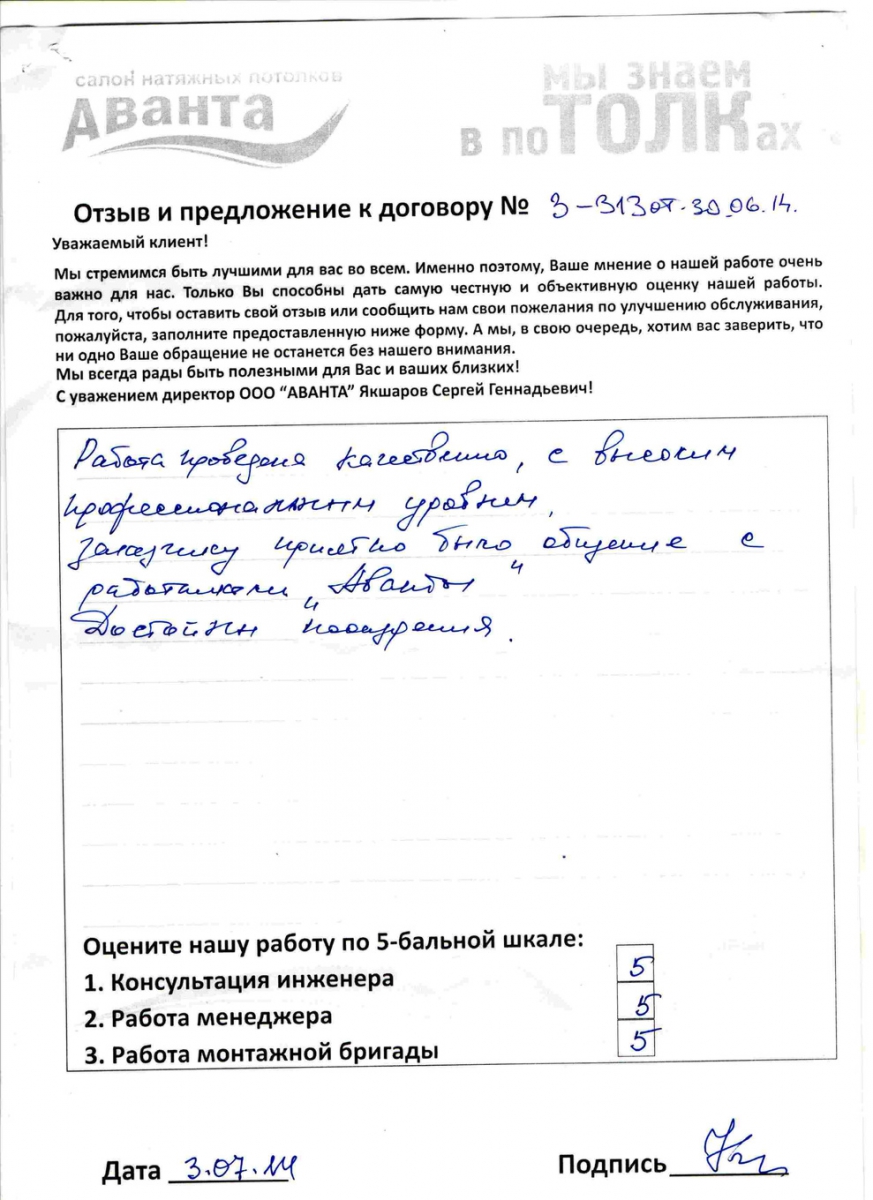 салон натяжных потолков
Аванта
мы знаем
в поТОЛКах
Отзыв и предложение к договору № З-313 от 30.06.14.
Уважаемый клиент!
Мы стремимся быть лучшими для вас во всем. Именно поэтому, Ваше мнение о нашей работе очень
важно для нас. Только Вы способны дать самую честную и объективную оценку нашей работы.
Для того, чтобы оставить свой отзыв или сообщить нам свои пожелания по улучшению обслуживания,
пожалуйста, заполните предоставленную ниже форму. А мы, в свою очередь, хотим вас заверить, что
ни одно Ваше обращение не останется без нашего внимания.
Мы всегда рады быть полезными для Вас и ваших близких!
С уважением директор ООО “АВАНТА” Якшаров Сергей Геннадьевич!
Работа проведена качественно, с высоким
профессиональным уровнем.
Заказчику приятно было общение с
работниками "Аванты"
Достойны поощрения.
Оцените нашу работу по 5-бальной шкале:
1. Консультация инженера 5
2. Работа менеджера 5
3. Работа монтажной бригады 5
Дата 3.07.14 Подпись